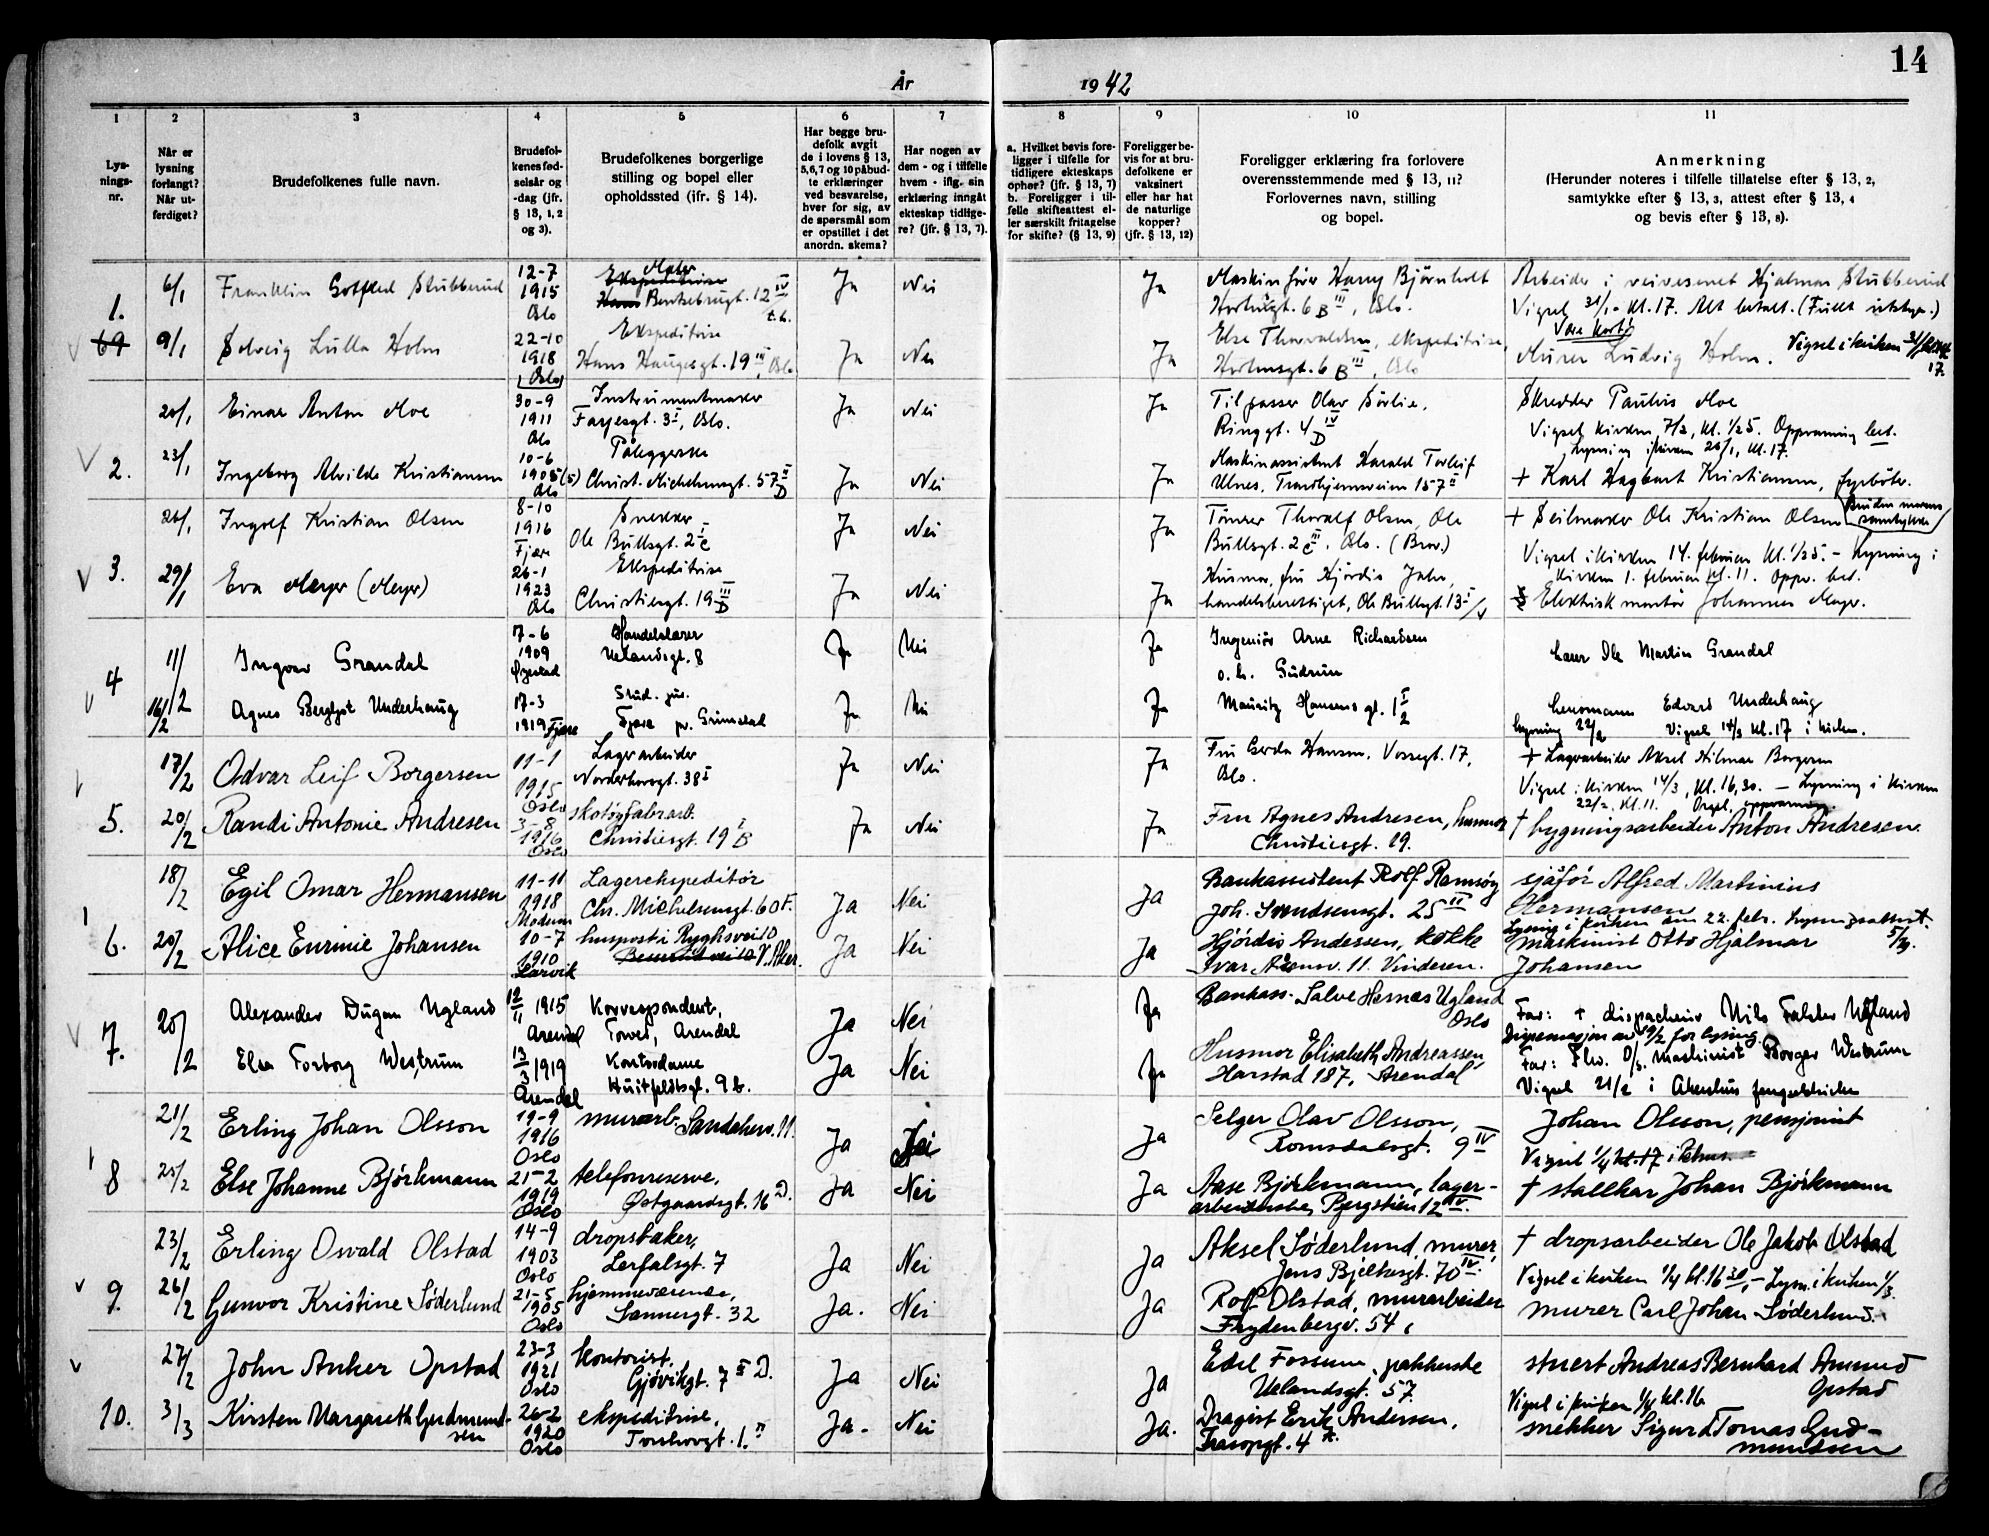 14
År 1942
1 2 3 4 5 6 7 8 9 10 11
Lysningsnr.
Når er lysning forlangt? Når utferdiget?
Brudefolkenes fulle navn.
Brudefolkenes fødselsår og -dag (jfr. § 13, 1, 2 og 3).
Brudefolkenes borgerlige stilling og bopel eller opholdssted (jfr. § 14).
Har begge brudefolk avgit de i lovens § 13, 5, 6, 7 og 10 påbudte erklæringer ved besvarelse, hver for sig, av de spørsmål som er opstillet i det anordn. skema?
Har nogen av dem - og i tilfelle hvem - iflg. sin erklæring inngåt ekteskap tidligere? (jfr. § 13, 7).
a. Hvilket bevis foreligger i tilfelle for tidligere ekteskaps ophør? (jfr. § 13, 7)
b. Foreligger i tilfelle skifteattest eller særskilt fritagelse for skifte? (§ 13, 9)
Foreligger bevis for at brudefolkene er vaksinert eller har hat de naturlige kopper? (jfr. § 13, 12)
Foreligger erklæring fra forlovere overensstemmende med § 13, 11? Forlovernes navn, stilling og bopel.
Anmerkning
(Herunder noteres i tilfelle tillatelse efter § 13, 2, samtykke efter § 13, 3, attest efter § 13, 4 og bevis efter § 13, 8).
1. 6/1 Franklin Gotfred Stubberud 12-7 1915 Oslo
Maler
Bentsebrugt. 12 IV
Ja Nei Ja
Maskinfører Harry Bjørnholt
6 B III, Oslo.
Arbeider i veivesenet Hjalmar Stubberud
Vigsel 31/1 - kl. 17. Alt betalt.
69 9/1 Solveig Lulla Holm 22-10 1918 Oslo
Ekspeditrise
Hans Haugesgt. 19 III, Oslo
Ja Nei Ja
Else Thorvaldsen, ekspeditrise,
6 B III, Oslo
Murer Ludvig Holm. Vigsel i kirken 31/1 17.
20/1 Einar Anton Moe 30-9 1911 Oslo
Instrumentmaker
3 I, Oslo.
Ja Nei Ja
Tilpasser Olav Sørlie.
Ringgt. 4 D IV
Skredder Paulus Moe
Vigsel kirken 7/2, kl. 1/2 5. Oppvarming bet.
Lysning i kirken 25/1, kl. 17.
2. 23/1 Ingeborg Alvilde Kristiansen 10-6 1905 (5) Oslo
Påleggerske
Christ. Michelsensgt. 57 D II
Ja Nei Ja
Maskinassistent Harald Torleif
Ulnes, Trondhjemsveien 157 II
+ Karl Hagbart Kristiansen, fyrbøter.
26/1 Ingolf Kristian Olsen 8-10 1916 Fjære
Snekker
Ole Bullsgt. 2 C I
Ja Nei Ja
Tømrer Thoralf Olsen, Ole
Bullsgt. 2 C III, Oslo. (Bror.)
+ Seilmaker Ole Kristian Olsen
Vigsel i kirken 14. februar kl. 1/2 5. - Lysning i
kirken 1. februar kl. 11. Oppv. bet.
3. 29/1 Eva Meyer (Meyer) 26-1 1923 Oslo
Ekspeditrise
Christiesgt. 19 D III
Ja Nei Ja
Husmor, fru Hjördis Jahn,
handelsberettiget, Ole Bullsgt. 13 I
Elektrisk montör Johannes Meyer.
4 11/2 Ingvar Grandal 7-6 1909 Øyestad
Handelslærer
Uelandsgt. 8
Ja Nei Ja
Ingeniör Arne Richardsen
o. h. Gudrun
Ole Martin Grandal
16/2 Agnes Bergljot Underhaug 17-3 1919 Fjære
Stud. jur.
Fjære pr. Grimstad
Ja Nei Ja
Mauritz Hansens gt. 1
Lensmann Edvard Underhaug
Lysning 22/2 Vigsel 14/3 kl. 17 i kirken.
17/2 Odvar Leif Borgersen 11-1 1915 Oslo
Lagerarbeider
Norderhovsgt. 38 I
Ja Nei Ja
Fru Gerda Hansen. Vossegt. 17,
Oslo.
+ Lagerarbeider Aksel Hilmar Borgersen
Vigsel i kirken 14/3, kl. 16,30. - Lysning i kirken
22/2, kl. 11. Orgel, oppvarming.
5. 20/2 Randi Antonie Andresen 3-8 1916 Oslo
skotøyfabr.arb.
Christiesgt. 19 B I
Ja Nei Ja
Fru Agnes Andresen, husmor
Christiesgt. 19.
+ bygningsarbeider Anton Andresen.
18/2 Egil Omar Hermansen 11-11 1918 Modum
Lagerekspeditör
Chr. Michelsensgt. 60 F.
Ja Nei Ja
Bankassistent Rolf Ramsöy
Joh. Svendsensgt. 25 II
sjåför Alfred Martinius
Hermansen
Lysing i kirken den 22. febr. Lysingsattest 5/3.
6. 20/2 Alice Eurinie Johansen 10-7 1910 Larvik
huspost i Ryghsvei 10
V. Aker.
Ja Nei Ja
Hjördis Andersen, kokke
Ivar Aasensv. 11. Vinderen.
maskinist Otto Hjalmar
Johansen
7. 20/2 Alexander Dugan Ugland 12/11 1915 Arendal
Korrespondent,
Torvet, Arendal
Ja Nei Ja
Bankass. Salve Hernes Ugland
Oslo
Far: + dispachør Nils Falster Ugland
Dispensasjon av 19/2 for lysing.
Elsa Torborg Westrum 13/3 1919 Arendal
Kontordame
Huitfeldtsgt. 9 b.
Ja Nei Ja
Husmor Elisabeth Andreassen
Harstad 187, Arendal
Far: Maskinist Borger Westrum
Vigsel 21/2 i Akershus fengselskirke
21/2 Erling Johan Olsson 19-9 1916 Oslo
murarb. Sandakerv. 11.
Ja Nei Ja
Selger Olav Olsson,
Romsdalsgt. 9 IV
Johan Olsson, pensjonist
Vigsel 1/4 kl. 17
8 25/2 Else Johanne Bjørkmann 21-2 1919 Oslo
telefonreserve,
Østgaardsgt. 16 D.
Ja Nei Ja
Aase Bjørkmann, lager-
arbeiderske, Bergstien 12 IV.
+ stallkar Johan Bjørkmann
23/2 Erling Osvald Olstad 14-9 1903 Oslo
dropskoker,
Lerfalsgt. 7
Ja Nei Ja
Aksel Söderlund, murer,
Jens Bjelkesgt. 70 IV.
+ dropsarbeider Ole Jakob Olstad
Vigsel i kirken 1/4 kl. 16 30, - Lysn. i kirken 1/3.
9. 26/2 Gunvor Kristine Söderlund 21-5 1905 Oslo
hjemmeværende,
Sannergt. 32
Ja. Nei Ja
Rolf Olstad, murarbeider
Frydenbergv. 54.
murer Carl Johan Söderlund.
27/2 John Anker Opstad 23-3 1921 Oslo
kontorist,
Gjøvikgt. 7 II D.
Ja Nei Ja
Edel Fossum, pakkerske
Uelandsgt. 57.
stuert Andreas Bernhard Amund
Opstad
Vigsel i kirken 1/4 kl. 16
10. 3/3 Kirsten Margareth Gudmund-
sen 26-2 1920 Oslo
ekspeditrise,
Torshovgt. 1. II
Ja. Nei Ja.
Dragist Erik Andersen,
4 A.
snekker Sigurd Tomas Gud-
mundsen